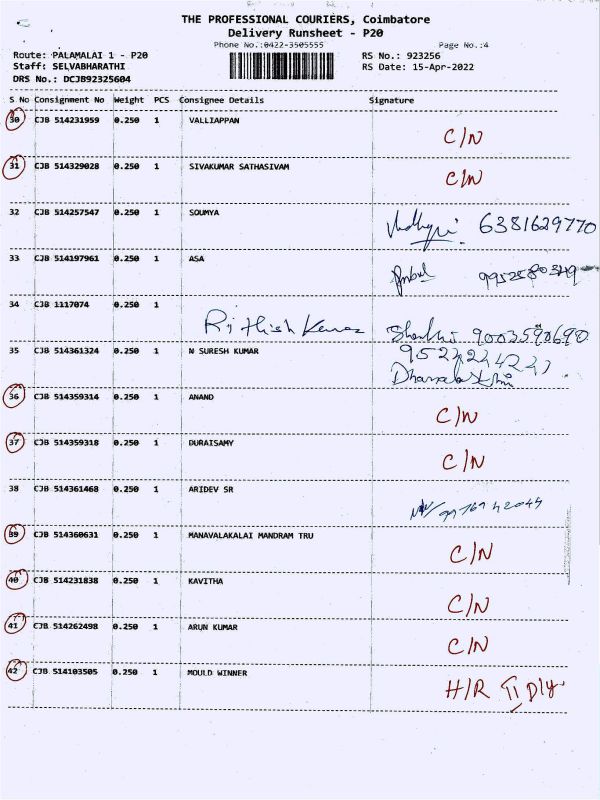 THE PROFESSIONAL COURIERS, Coimbatore
Delivery Runsheet - P20
Phone No.:0422-3505555 Page No.:4
Route: PALAMALAI 1 - P20 RS No.: 923256
Staff: SELVABHARATHI RS Date: 15-Apr-2022
DRS No.: DCJB92325604
S No Consignment No Weight PCS Consignee Details Signature
30 CJB 514231959 0.250 1 VALLIAPPAN C/N
31 CJB 514329028 0.250 1 SIVAKUMAR SATHASIVAM C/N
32 CJB 514257547 0.250 1 SOUMYA 6381629770
33 CJB 514197961 0.250 1 ASA
34 CJB 1117074 0.250 1
Rithish Kumar 9003590690
35 CJB 514361324 0.250 1 N SURESH KUMAR
36 CJB 514359314 0.250 1 ANAND C/N
37 CJB 514359318 0.250 1 DURAISAMY C/N
38 CJB 514361468 0.250 1 ARIDEV SR
39 CJB 514360631 0.250 1 MANAVALAKALAI MANDRAM TRU C/N
40 CJB 514231838 0.250 1 KAVITHA C/N
41 CJB 514262498 0.250 1 ARUN KUMAR C/N
42 CJB 514103505 0.250 1 MOULD WINNER H/R